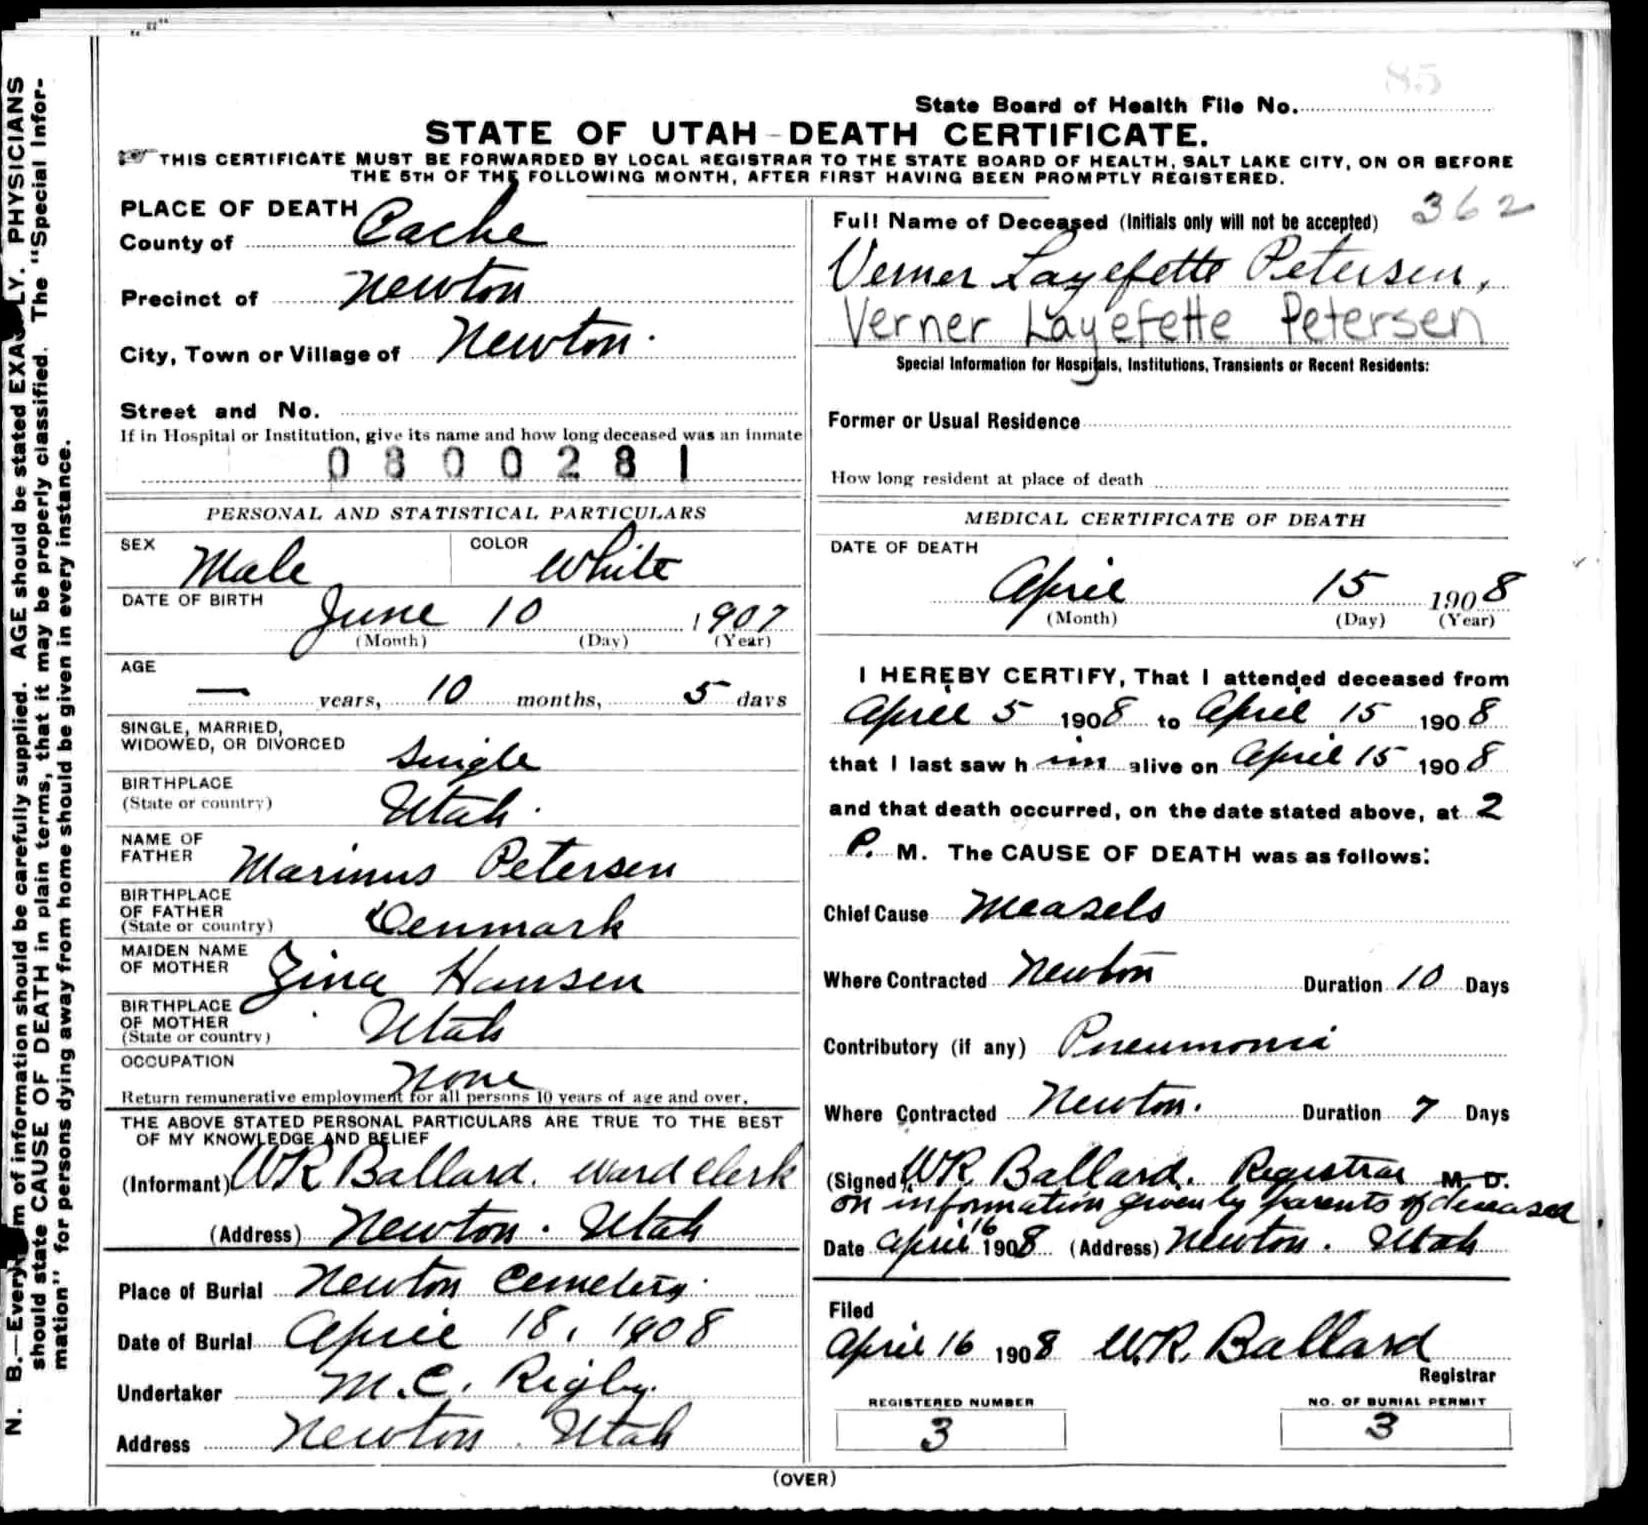 85
State Board of Health File No.
STATE OF UTAH - DEATH CERTIFICATE.
THIS CERTIFICATE MUST BE FORWARDED BY LOCAL REGISTRAR TO THE STATE BOARD OF HEALTH, SALT LAKE CITY, ON OR BEFORE
THE 5TH OF THE FOLLOWING MONTH, AFTER FIRST HAVING BEEN PROMPTLY REGISTERED.
PLACE OF DEATH
County of Cache
Precinct of Newton
City, Town or Village of Newton.
Street and No.
If in Hospital or Institution, give its name and how long deceased was an inmate
0800281
PERSONAL AND STATISTICAL PARTICULARS
SEX Male COLOR White
DATE OF BIRTH
June 10 1907
(Month) (Day) (Year)
AGE
— years, 10 months, 5 days
SINGLE, MARRIED,
WIDOWED, OR DIVORCED Single
BIRTHPLACE
(State or country) Utah.
NAME OF
FATHER Marinus Petersen
BIRTHPLACE
OF FATHER
(State or country) Denmark
MAIDEN NAME
OF MOTHER Zina Hansen
BIRTHPLACE
OF MOTHER
(State or country) Utah
OCCUPATION
None
Return remunerative employment for all persons 10 years of age and over.
THE ABOVE STATED PERSONAL PARTICULARS ARE TRUE TO THE BEST
OF MY KNOWLEDGE AND BELIEF
(Informant) WR Ballard. Ward Clerk
(Address) Newton. Utah
Place of Burial Newton Cemetery.
Date of Burial April 18, 1908
Undertaker M.C. Rigby.
Address Newton. Utah
Full Name of Deceased (Initials only will not be accepted) 362
Verner Layefette Petersen,
Verner Layefette Petersen
Special Information for Hospitals, Institutions, Transients or Recent Residents:
Former or Usual Residence
How long resident at place of death
MEDICAL CERTIFICATE OF DEATH
DATE OF DEATH
April 15 1908
(Month) (Day) (Year)
I HEREBY CERTIFY, That I attended deceased from
April 5 1908 to April 15 1908
that I last saw h im alive on April 15 1908
and that death occurred, on the date stated above, at 2
P. M. The CAUSE OF DEATH was as follows:
Chief Cause Measels
Where Contracted Newton Duration 10 Days
Contributory (if any) Pneumonia
Where Contracted Newton. Duration 7 Days
(Signed) WR. Ballard. Registrar M. D.
on information given by parents of deceased
Date April 16 1908 (Address) Newton. Utah
Filed
April 16 1908 W.R. Ballard
Registrar
REGISTERED NUMBER NO. OF BURIAL PERMIT
3 3
(OVER)
N. B.—Every item of information should be carefully supplied. AGE should be stated EXACTLY. PHYSICIANS
should state CAUSE OF DEATH in plain terms, that it may be properly classified. The "Special Infor-
mation" for persons dying away from home should be given in every instance.